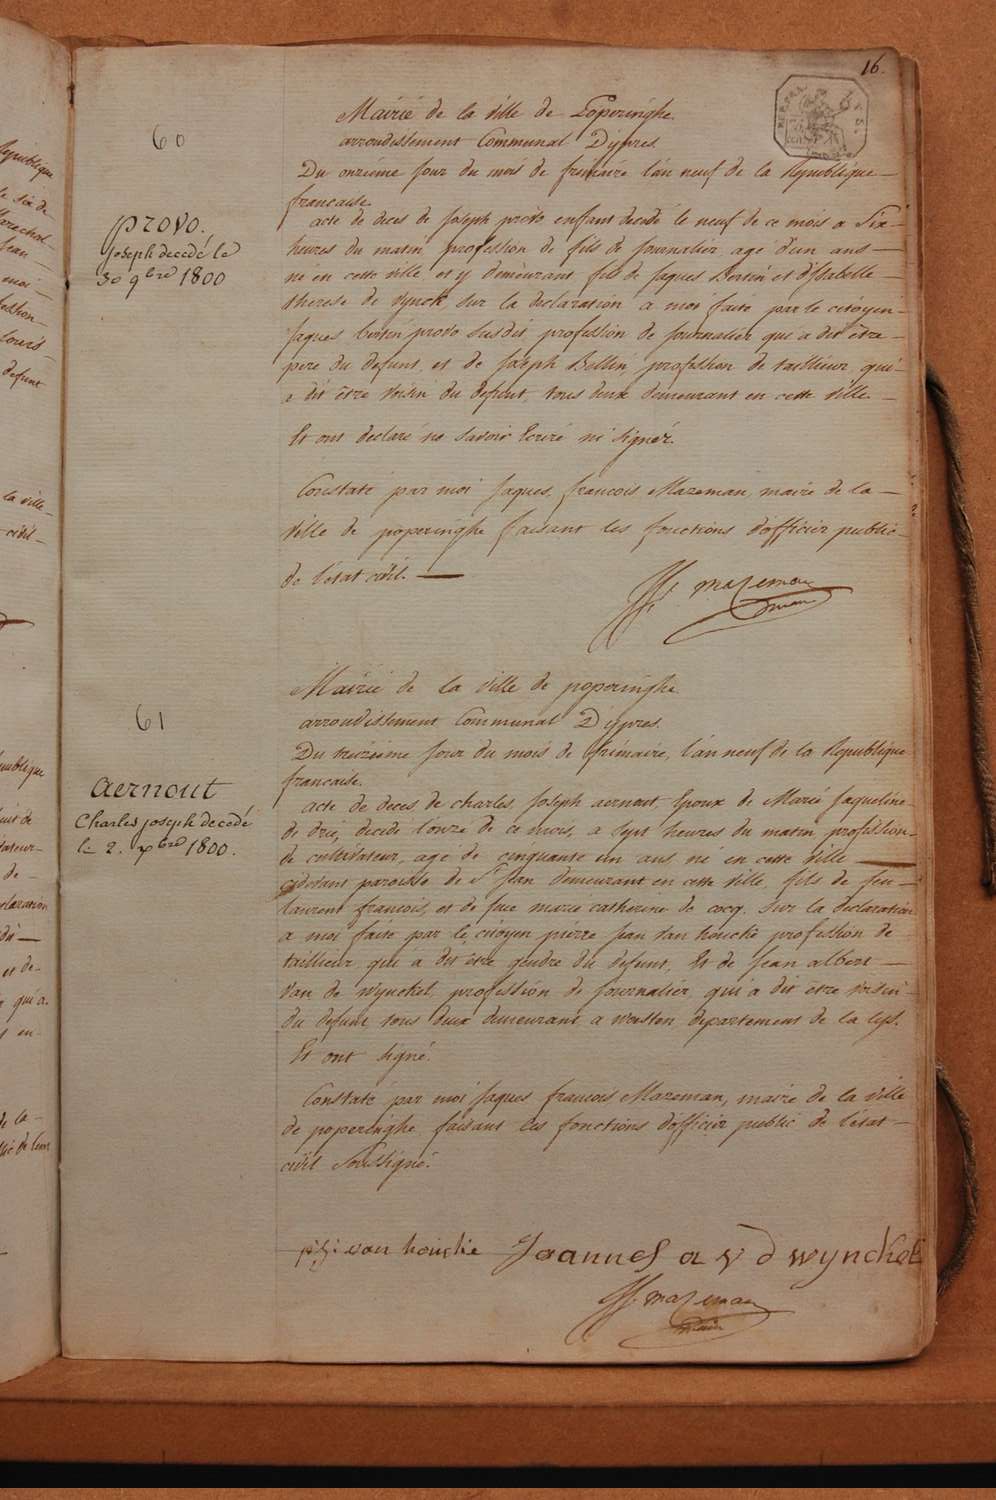 16.
60
Mairie de la ville de Poperinghe
arrondissement Communal D'ypres
Du onzième jour du mois de frimaire l'an neuf de la Republique
francaise.
provo.
Joseph decedé le
30 9bre 1800
acte de deces de Joseph provo enfant decedé le neuf de ce mois a Six
heures du matin, profession de fils de journalier, agé d'un ans
né en cette ville et y demeurant, fils de Jaques Bertin et d'Isabelle
therese de Vynck sur la declaration à moi faite par le citoyen
Jaques bertin provo susdit profession de journalier qui a dit être
pere du defunt, et de Joseph Bellin, profession de taillieur, qui
a dit être voisin du defunt, tous deux demeurant en cette ville
Et ont declaré ne savoir Ecrire ni signér.
Constaté par moi Jaques, francois Mazeman, maire de la
ville de poperinghe faisant les fonctions d'officier public
de l'état civil.
JF. mazeman
maire
Mairie de la ville de poperinghe
61
arrondissement Communal D'ypres
Du treizieme jour du mois de frimaire, l'an neuf de la Republique
francaise.
aernout
Charles joseph decedé
le 2. xbre 1800.
acte de deces de charles, Joseph aernout, Epoux de Marie Jaqueline
de drie, decedé l'onze de ce mois, a sept heures du matin, profession
de cultivateur, agé de cinquante un ans né en cette ville
cidevant paroisse de St Jean demeurant en cette ville, fils de feu
laurent francois, et de feue marie catherine de cocq. Sur la declaration
a moi faite par le citoyen pierre jean van houcke profession de
taillieur qui a dit être gendre du defunt, Et de Jean albert
Van de Wynckel, profession de journalier, qui a dit être voisin
du defunt tous deux demeurant a woesten departement de la lys.
Et ont signé.
Constaté par moi Jaques francois Mazeman, maire de la ville
de poperinghe faisant les fonctions d'officier public de l'état
civil soussigné.
p: j: van houcke Joannes a v d wynckel
JF. mazeman
maire